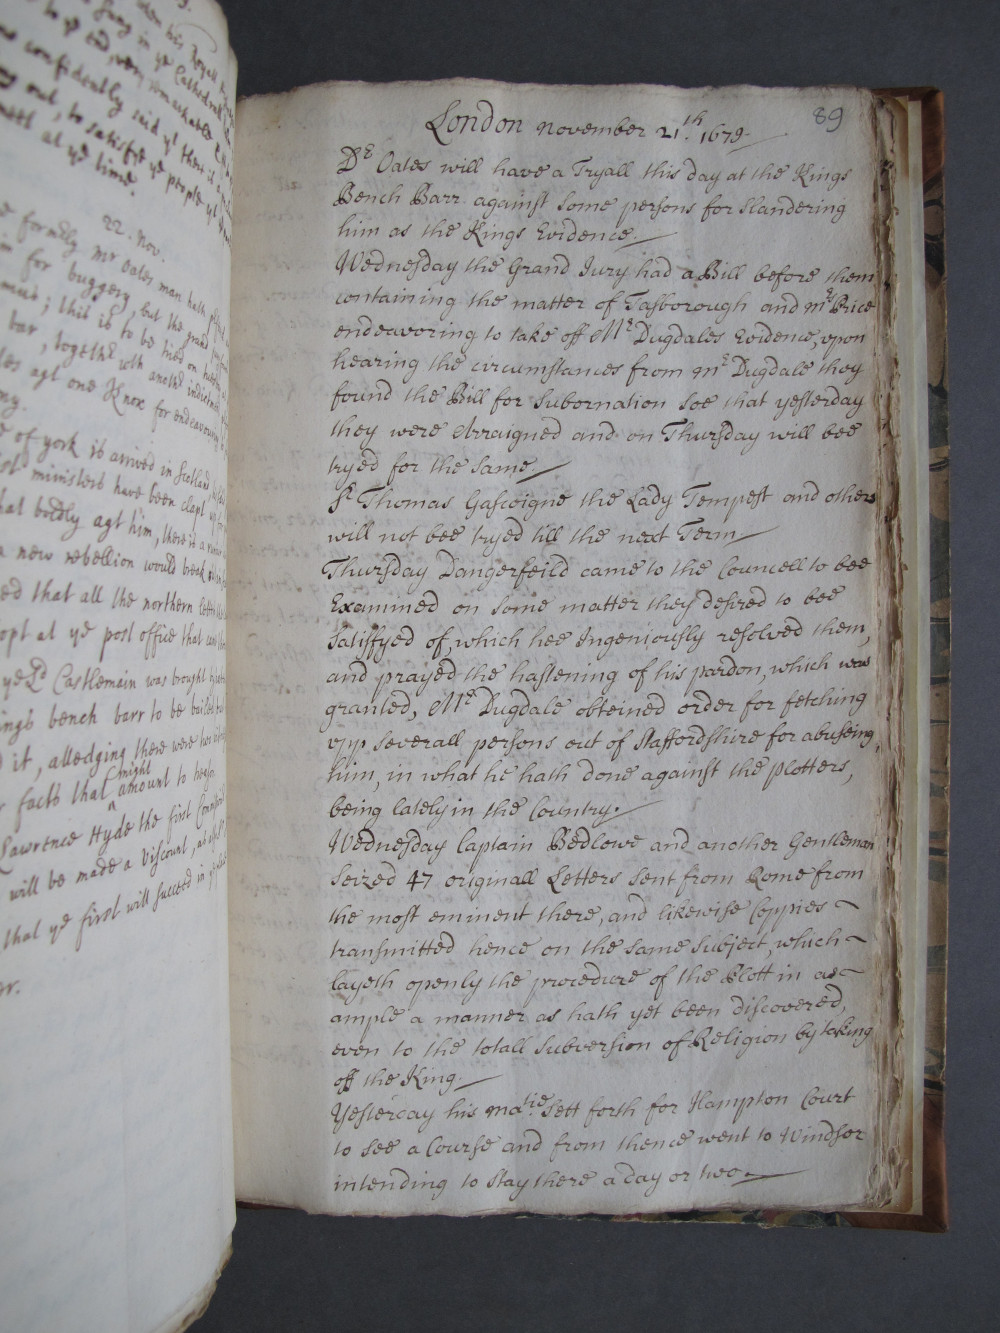 his Royall
sung in ye Cathedrall
to ye end, very remarkable
confidently said yt there is
out, to satisfye ye people yt
at ye time.
22. Nov.
formerly mr Oates man hath
for buggery, but the grand
this is to be tried on
bar, togethr wth anothr indictmt
agt one Knox for endeavouring
of york is arrived in Scotland,
ministers have been clapt up
bodly agt him, there is a
new rebellion would break
ed that all the northern letters
opt at ye post office that
ye Ld Castlemain was brought
bench barr to be bailed
it, alledging there were two
facts that might amount to
Lawrence Hyde the first
will be made a Viscount,
that ye first will succeed in
89
London November 21th. 1679
Dr Oates will have a Tryall this day at the Kings
Bench Barr against some persons for slandering
him as the Kings Evidence.
Wednesday the Grand Jury had a Bill before them
containing the matter of Tasborough and mrs Price
endeavoring to take off Mr Dugdales Evidence, vpon
hearing the circumstances from mr Dugdale they
found the Bill for Subornation soe that yesterday
they were Arraigned and on Thursday will bee
tryed for the same.
Sr Thomas Gascoigne the Lady Tempest and others
will not bee tryed till the next Term
Thursday Dangerfeild came to the Councell to bee
Examined on some matter they desired to bee
satisfyed of, which hee Ingeniously resolved them,
and prayed the hastening of his pardon, which was
granted, Mr Dugdale obteined order for fetching
vpp severall persons out of Staffordshire for abuseing
him, in what he hath done against the plotters,
being lately in the Country.
Wednesday Captain Bedlowe and another Gentleman
seized 47 originall Letters sent from Rome from
the most eminent there, and likewise Coppies
transmitted hence on the same subject, which
layeth openly the procedure of the Plott in as
ample a manner as hath yet been discovered,
even to the totall subversion of Religion by taking
off the King.
Yesterday his Matie. sett forth for Hampton Court
to see a Course and from thence went to Windsor
intending to stay there a day or two.